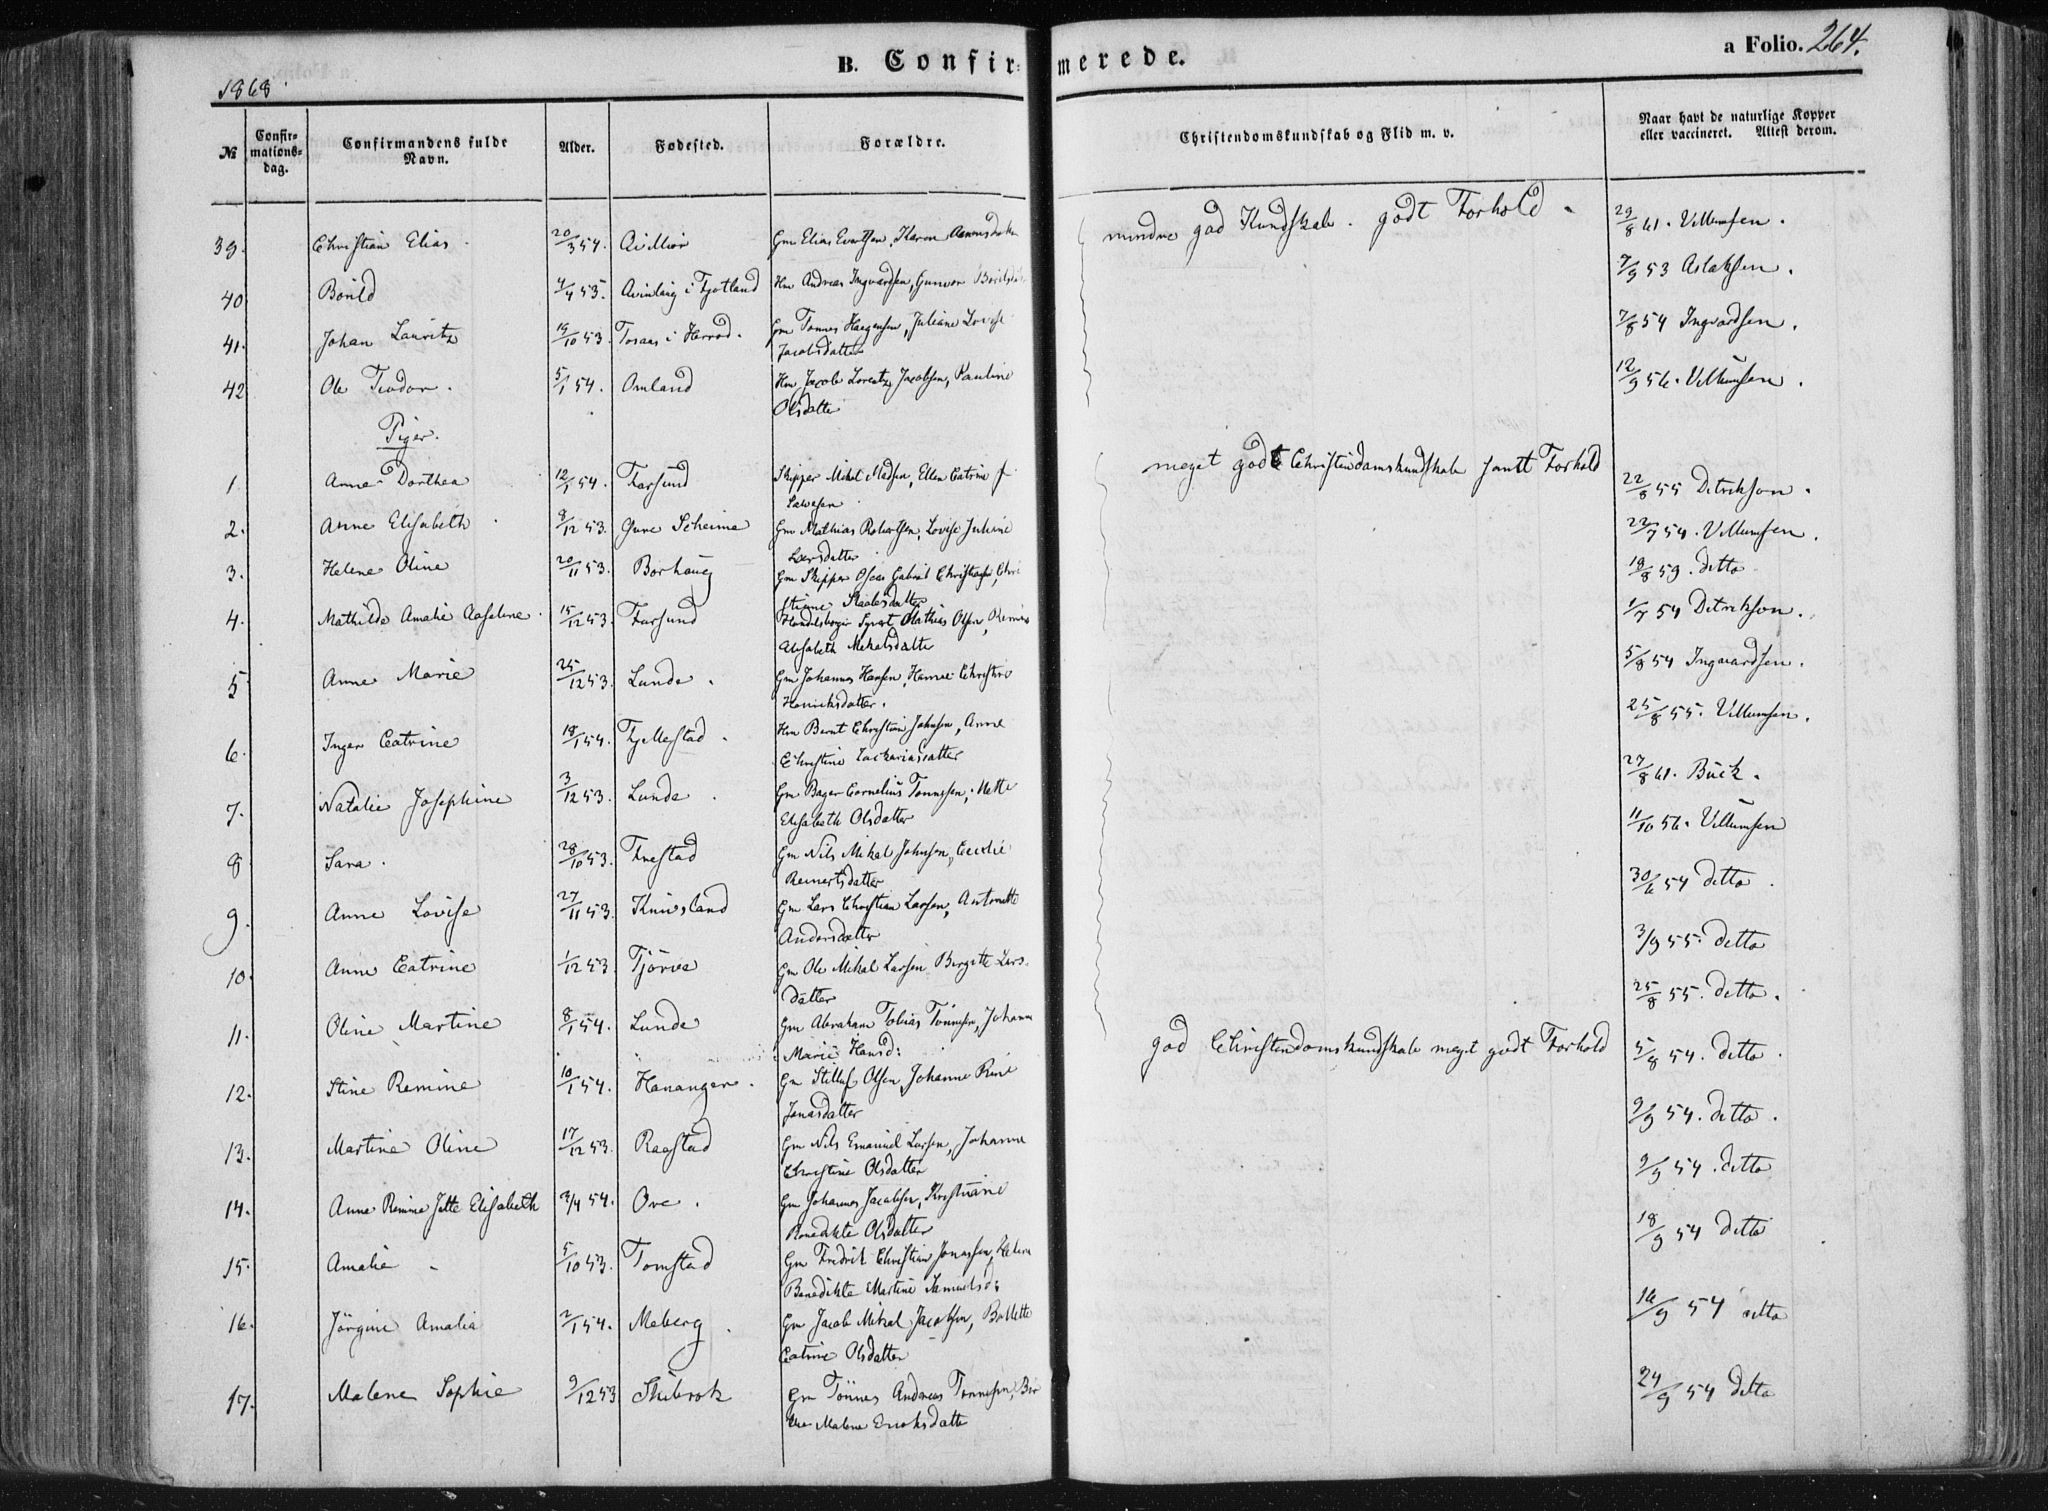 B. Confirmerede.
a Folio. 264.
1868
№ Confirmations-dag. Confirmandens fulde Navn. Alder. Fødested. Forældre. Christendomskundskab og Flid m. v. Naar havt de naturlige Kopper eller vaccineret. Attest derom.
39. Christian Elias. 20/3 54. Gm Elias Evertsen, Karen mindre god Kundskab. godt Forhold. 29/8 61. Villumsen.
40 Borild 4/4 53. i Fjotland Hm Andreas Ingvardsen, Gunvor 7/9 53 Aslaksen.
41. Johan Lauritz 19/10 53. i Herrad. Gm Tønnes Haagensen, Juliane Lovise 7/8 54 Ingvardsen.
Jacobsdatter
42 Ole Teodor. 5/1 54. Omland Hm Jacob Lorentz Jacobsen, Pauline 12/9 56. Villumsen.
Olsdatter
Piger.
1. Anne Dorthea 12/1 54. Farsund Skipper Mikal Madsen, Ellen Catrine f. meget godt Christendomskundskab samt Forhold 22/8 55 Detrikson.
2. Anne Elisabeth. 8/12 53. Gm Mathias Robertsen, Lovise Juliane 22/7 54. Villumsen.
Larsdatter
3. Helene Oline 20/11 53. Borhaug Gm Skipper Gabriel 19/8 59. detto
stiane
4. Mathilde Amalie Aaselene. 15/12 53 Farsund Syvert Mathias Olsen, 1/7 54 Detrikson.
Elisabeth Mikalsdatter
5 Anne Marie 25/12 53. Lunde. Gm Johannes Hansen, Christine 5/8 54 Ingvardsen.
Henriksdatter.
6. Inger Catrine 18/1 54. Fjellestad. Hm Bernt Christian Johnsen, Anne 25/8 55. Villumsen.
Christine Zackariasdatter
7. Natalie Josephine 3/12 53. Lunde. Gm Bager Cornelius Tønnesen, Mette 27/8 61. Buck.
Elisabeth Olsdatter
8 Sara. 28/10 53. Frestad Gm Nils Mikal Johnsen, Cecilie 11/10 56. Villumsen
Reinertsdatter
9. Anne Lovise 27/11 53. Knivsland Gm Lars Christian Larsen, Antonette 30/6 54 detto.
Andersdatter
10. Anne Catrine 1/12 53. Tjörve Gm Ole Mikal Larsen, Birgitte Lars- 3/9 55. detto
datter
11. Oline Martine 8/1 54. Lunde Gm Abraham Tobias Tönnesen, Johanne 25/8 55. detto.
Marie Hansd:
12. Stine Remine 10/1 54. Hananger. Gm Olsen, Johanne god Christendomskundskab meget godt Forhold 5/8 54. detto.
Jonasdatter
13. Martine Oline 17/12 53. Raastad Gm Nils Emanuel Larsen, Johanne 9/9 54. detto.
Christine Olsdatter
14. Anne Remine Jette Elisabeth 3/4 54. Ore. Gm Johannes Jacobsen, Kristiane 9/9 54. detto
Benedikte Olsdatter
15. Amalie 5/10 53. Tomstad Gm Fredrik Christian Jonassen, 18/9 54 detto
Benedikte Martine Samuelsd:
16. Jörgine Amalia 2/1 54. Meberg. Gm Jacob Mikal Jacobsen, Bollette 16/9 54 detto
Catrine Olsdatter
17. Malene Sophie 9/12 53 Skibrok Gm Tönnes Andreas Tönnesen, 24/9 54 detto
Malene Eriksdatter